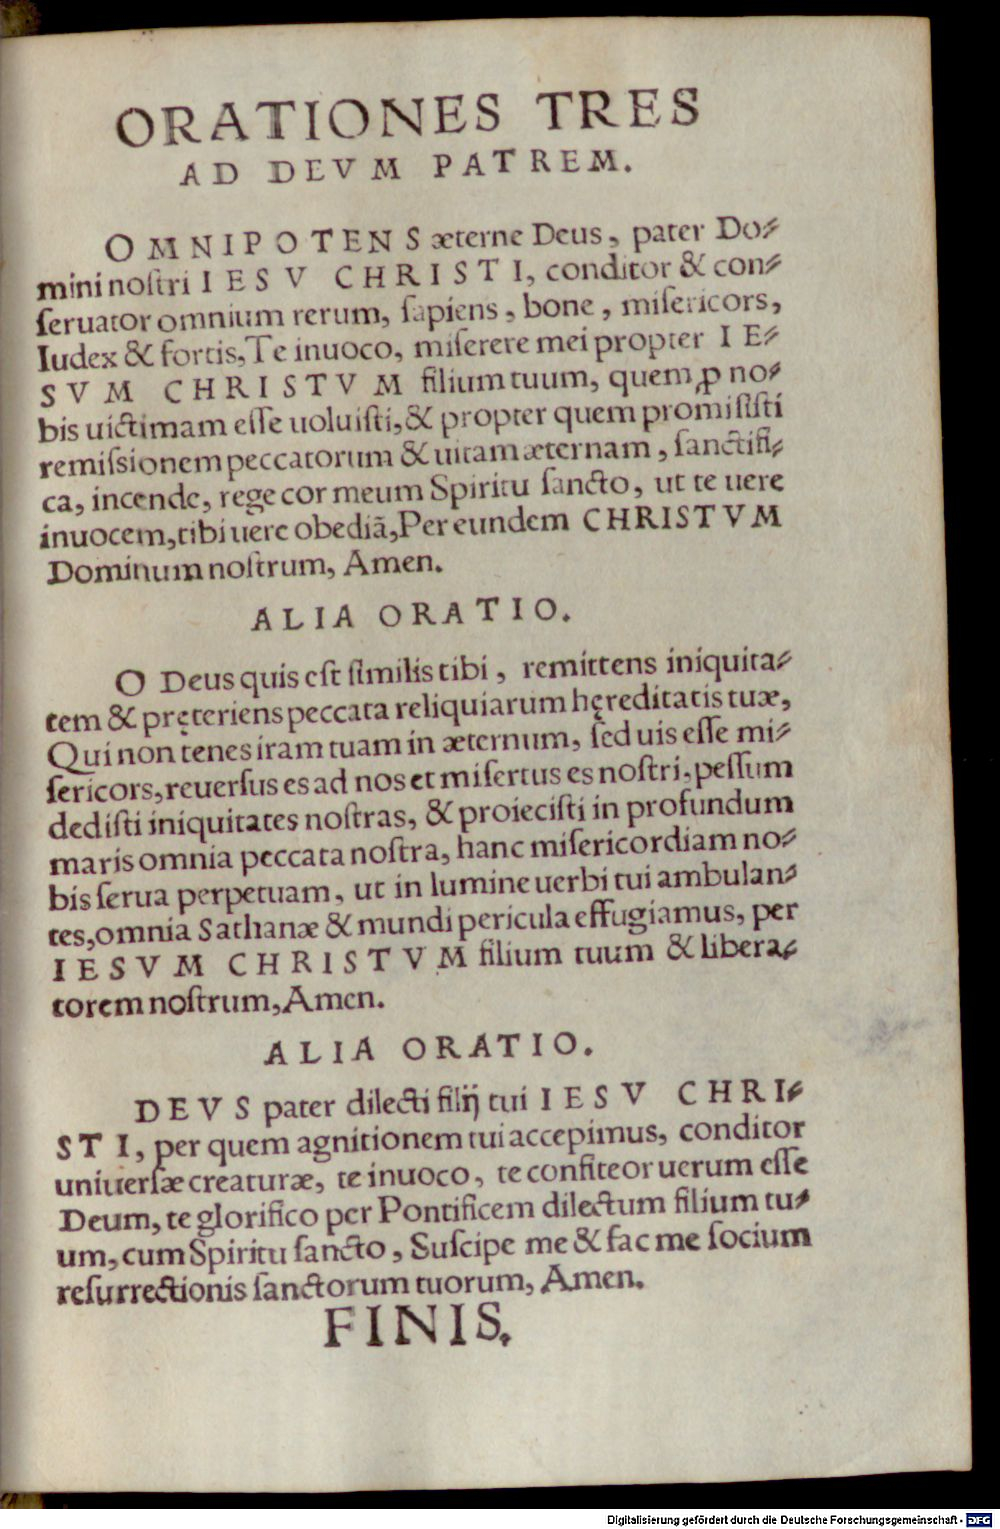 ORATIONES TRES
AD DEVM PATREM.
OMNIPOTENS æterne Deus, pater Do⸗
mini noſtri IESV CHRISTI, conditor & con⸗
ſeruator omnium rerum, ſapiens, bone, miſericors,
Iudex & fortis, Te inuoco, miſerere mei propter IE⸗
SVM CHRISTVM filium tuum, quem ꝓ no⸗
bis uictimam eſſe uoluiſti, & propter quem promiſiſti
remiſsionem peccatorum & uitam æternam, ſanctifi⸗
ca, incende, rege cor meum Spiritu ſancto, ut te uere
inuocem, tibi uere obediã, Per eundem CHRISTVM
Dominum noſtrum, Amen.
ALIA ORATIO.
O Deus quis eſt ſimilis tibi, remittens iniquita⸗
tem & pręteriens peccata reliquiarum hęreditatis tuæ,
Qui non tenes iram tuam in æternum, ſed uis eſſe mi⸗
ſericors, reuerſus es ad nos et miſertus es noſtri, peſſum
dediſti iniquitates noſtras, & proieciſti in profundum
maris omnia peccata noſtra, hanc miſericordiam no⸗
bis ſerua perpetuam, ut in lumine uerbi tui ambulan⸗
tes, omnia Sathanæ & mundi pericula effugiamus, per
IESVM CHRISTVM filium tuum & libera⸗
torem noſtrum, Amen.
ALIA ORATIO.
DEVS pater dilecti filij tui IESV CHRI⸗
STI, per quem agnitionem tui accepimus, conditor
uniuerſæ creaturæ, te inuoco, te confiteor uerum eſſe
Deum, te glorifico per Pontificem dilectum filium tu⸗
um, cum Spiritu ſancto, Suſcipe me & fac me ſocium
reſurrectionis ſanctorum tuorum, Amen.
FINIS.
Digitalisierung gefördert durch die Deutsche Forschungsgemeinschaft - DFG